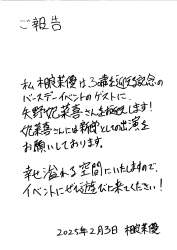 ご報告
私 相良茉優は3歳を迎える記念の
バースデーイベントのゲストに、
矢野妃菜喜さんを指名します!
妃菜喜さんには新郎としての出演を
お願いしております。
幸せ溢れる空間にいたしますので、
イベントにぜひ遊びに来てください!
2025年2月3日 相良茉優